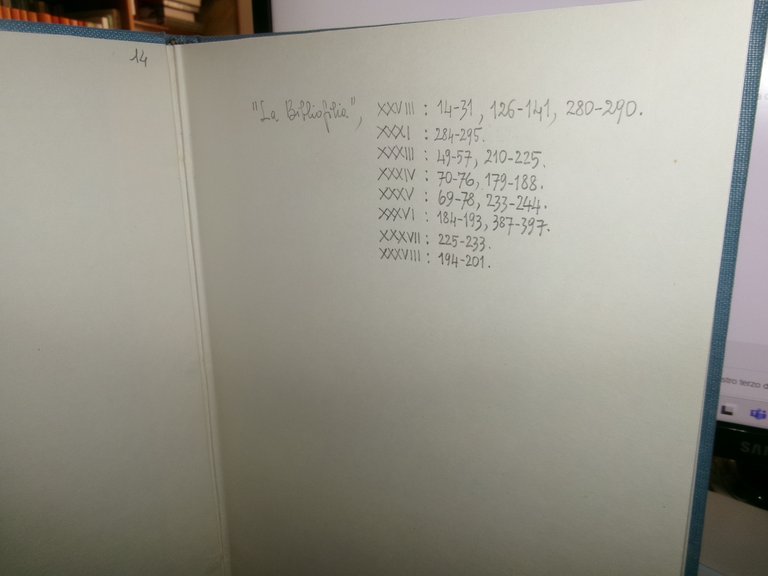 14
"La Bibliofilia", XXVIII : 14-31, 126-141, 280-290.
XXXI : 284-295.
XXXIII : 49-57, 210-225.
XXXIV : 70-76, 179-188.
XXXV : 69-78, 233-244.
XXXVI : 184-193, 387-397.
XXXVII : 225-233.
XXXVIII : 194-201.
terzo